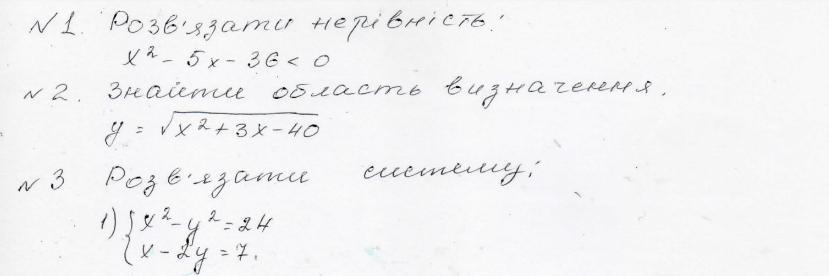 №1. Розв'язати нерівність:
x² - 5x - 36 < 0
№2. Знайти область визначення.
y = √(x² + 3x - 40)
№3 Розв'язати систему:
1) { x² - y² = 24
{ x - 2y = 7.